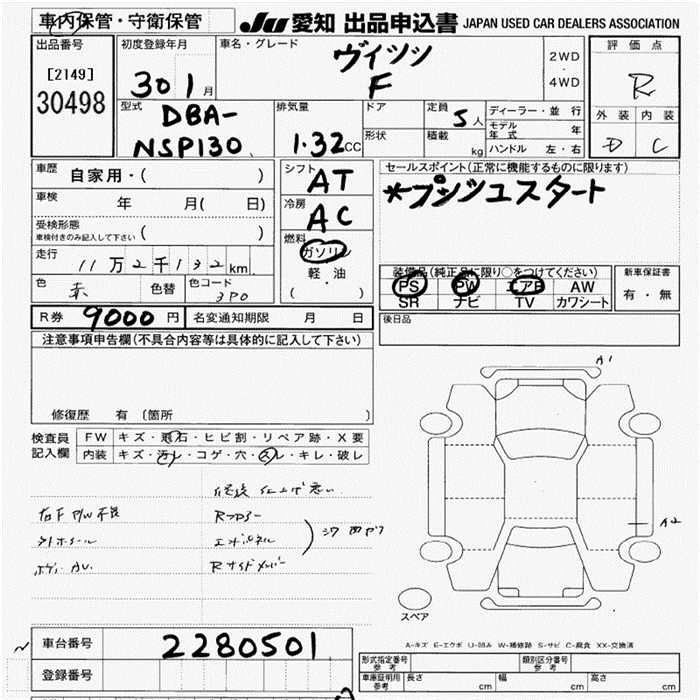 車内保管・守衛保管 JU 愛知 出品申込書 JAPAN USED CAR DEALERS ASSOCIATION
出品番号 [2149] 30498
初度登録年月 30 1 月
車名・グレード ヴィツツ F
2WD ・ 4WD
評価点 R
外装 内装 D C
型式 DBA-NSP130
排気量 1.32 CC
ドア 形状
定員 5 人 積載 kg
ディーラー・並行
モデル年式 年
ハンドル 左・右
車歴 自家用・( )
車検 年 月( 日)
受検形態 車検付きのみ記入して下さい ( )
走行 11万2千132 km
色 赤 色替 色コード 3P0
シフト AT
冷房 AC
燃料 ガソリン 軽・油 ( )
セールスポイント(正常に機能するものに限ります)
*プシュスタート
装備品(純正品に限り○をつけてください)
PS PW エアB AW
SR ナビ TV カワシート
新車保証書 有・無
R券 9000 円 名変通知期限 月 日
後日品
注意事項申告欄(不具合内容等は具体的に記入して下さい)
修復歴 有〔箇所 〕
検査員記入欄
FW キズ・飛石・ヒビ割・リペア跡・X要
内装 キズ・汚レ・コゲ・穴・スレ・キレ・破レ
仕上げ悪い
Rフロアー
エンドパネル
Rサイドメンバー
外ホイール
A1
A2
スペア
A-キズ E-エクボ U-凹み W-補修跡 S-サビ C-腐食 XX-交換済
車台番号 2280501
登録番号
形式指定番号 参考 類別区分番号 参考
車庫証明用 参考 長さ cm 幅 cm 高さ cm